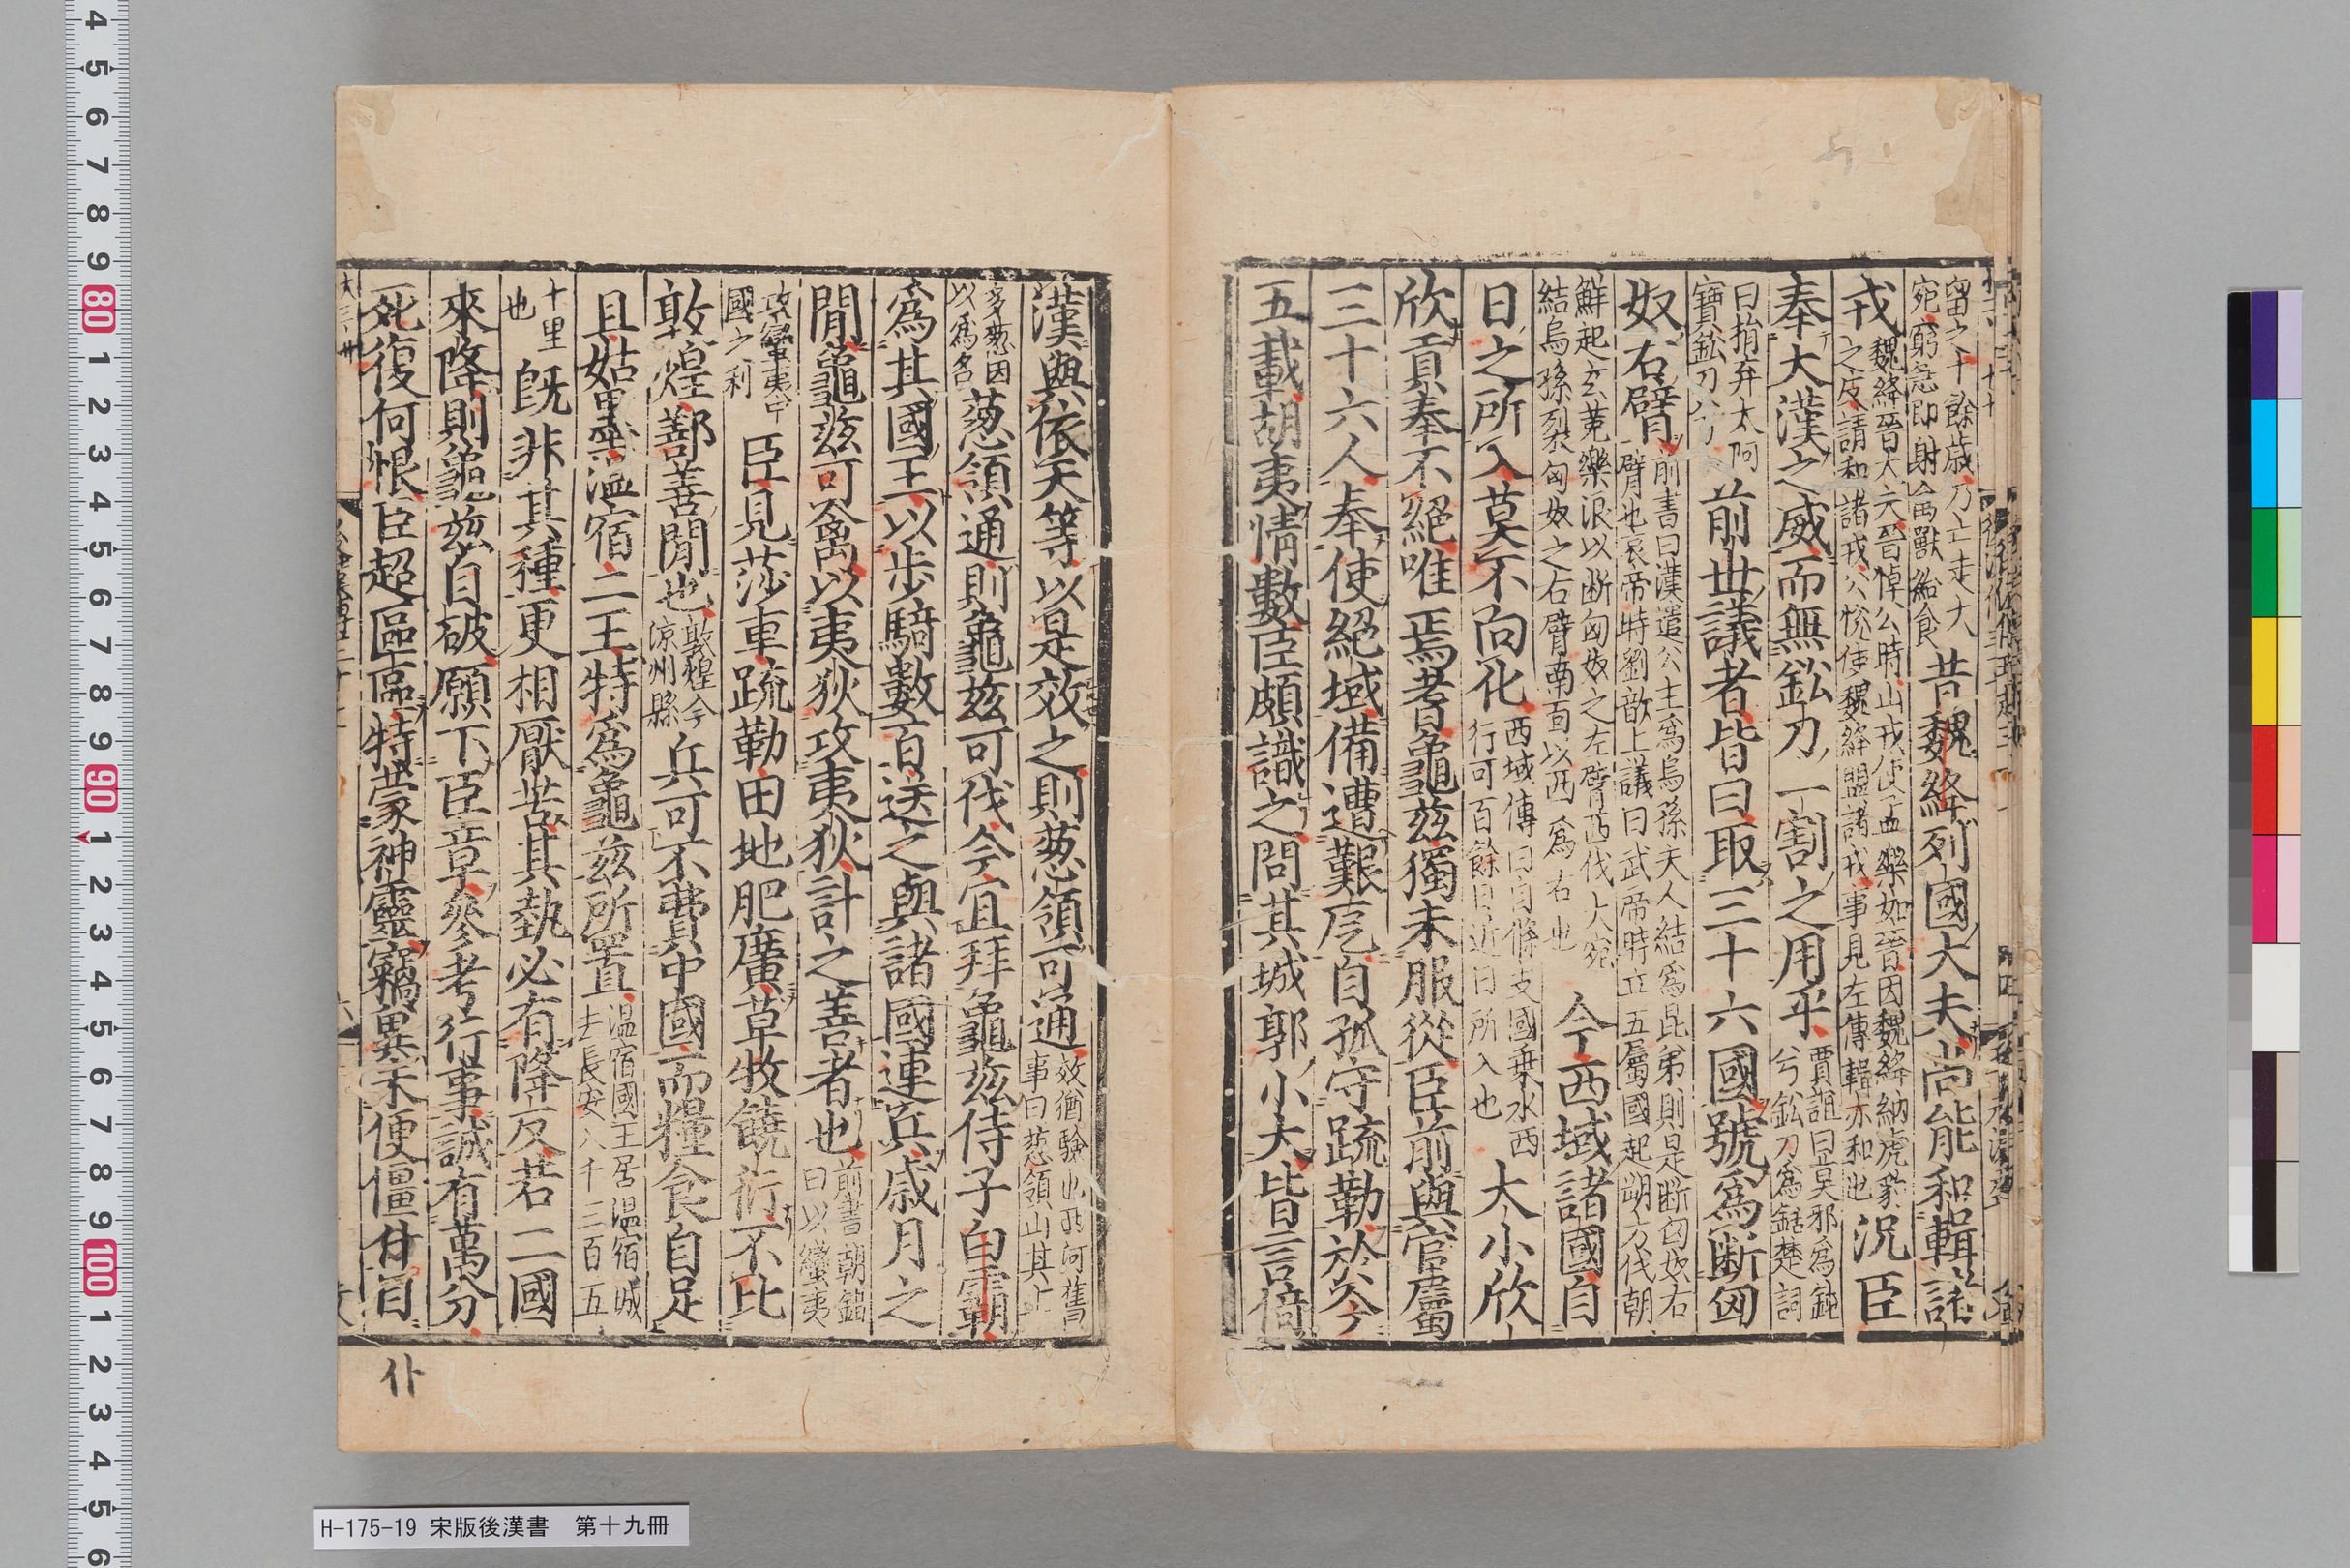 宙之十餘歲乃亡走大
宛窮急即射禽獸給食昔魏絳列國大夫尚能和輯諸
戎魏絳晉大夫晉悼公時山戎使孟樂如晉因魏絳納虎豹
之皮請和諸戎公悅使魏絳盟諸戎事見左傳輯亦和也況臣
奉大漢之威而無鈆刀一割之用乎賈誼曰莫邪爲鈍
兮鈆刀爲銛楚詞
曰捐弃太阿
寶鈆刀兮前世議者皆曰取三十六國號爲斷匈
奴右臂前書曰漢遣公主爲烏孫夫人結爲昆弟則是斷匈奴右
臂也哀帝時劉歆上議曰武帝時立五屬國起朔方伐朝
鮮起玄菟樂浪以断匈奴之左臂西伐大宛
結烏孫裂匈奴之右臂南面以西爲右也今西域諸國自
日之所入莫不向化西域傳曰自條支國乗水西
行可百餘日近日所入也大小欣
欣貢奉不絕唯焉耆龜茲獨未服從臣前與官屬
三十六人奉使絕域備遭艱戹自孤守疏勒於今
五載胡夷情數臣頗識之問其城郭小大皆言倚
漢與依天等以是效之則葱領可通效猶驗也西河舊
事曰葱領山其上
多葱因
以爲名葱領通則龜茲可伐今宜拜龜茲侍子白霸
爲其國王以步騎數百送之與諸國連兵歲月之
閒龜茲可禽以夷狄攻夷狄計之善者也前書朝錯
曰以蠻夷
攻蠻夷中
國之利臣見莎車疏勒田地肥廣草牧饒衍不比
敦煌鄯善閒也敦煌今
涼州縣兵可不費中國而糧食自足
且姑墨溫宿二王特爲龜茲所置温宿國王居温宿城
去長安八千三百五
十里
也旣非其種更相厭苦其埶必有降反若二國
來降則龜茲自破願下臣章參考行事誠有萬分
死復何恨臣超區區特蒙神靈竊冀未便僵仆目
仆
H-175-19 宋版後漢書 第十九冊